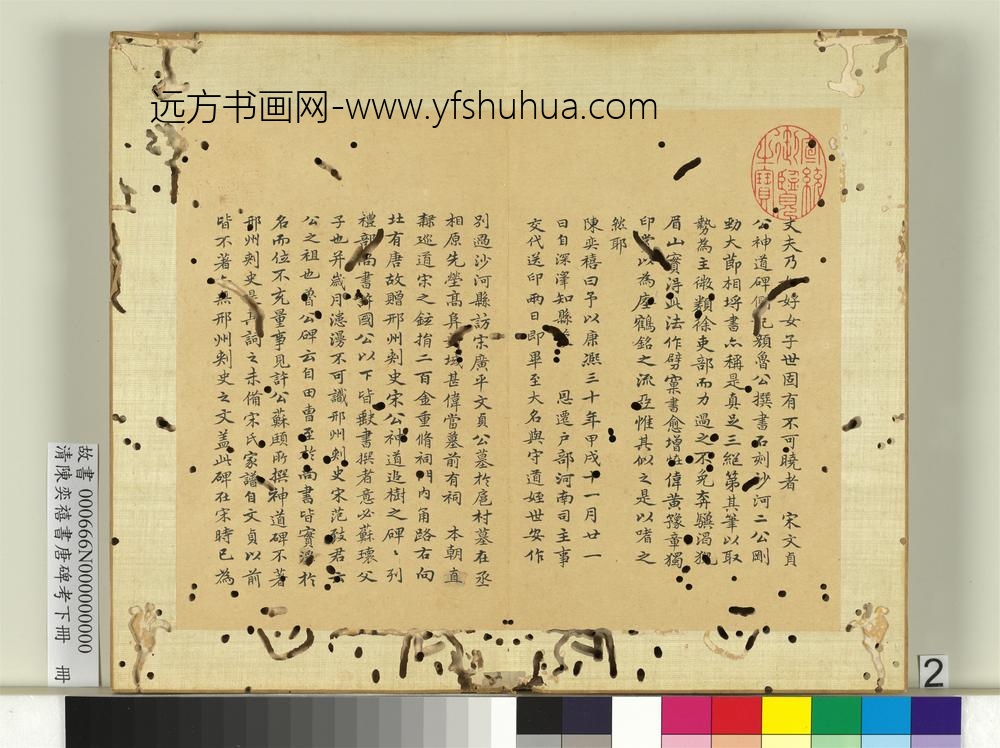 远方书画网-www.yfshuhua.com
宣統御覽之寶
丈夫乃 好女子世固有不可曉者 宋文貞
公神道碑側記顏魯公撰書石刻沙河二公剛
勁大節相埒書亦稱是真足三絕第其筆以取
勢為主微類徐吏部而力過之不免奔驥渴猊
眉山實得此法作劈窠書愈增壯偉黃豫章獨
印 以為瘞鶴銘之流亞惟其似之是以嗜之
然耶
陳奕禧曰予以康熙三十年甲戌十一月廿一
日自深澤知縣 恩遷戶部河南司主事
交代送印兩日即畢至大名與守道姪世安作
別過沙河縣訪宋廣平文貞公墓於扈村墓在丞
相原先塋高阜 域甚偉當墓前有祠 本朝直
隸巡道宋之鋐捐二百金重脩祠門內甬路右向
壯有唐故贈邢州刺史宋公神道追樹之碑、列
禮部尚書許國公以下皆獻書撰者意必蘇瓌父
子也并歲月漶漫不可識邢州刺史宋范殁君
公之祖也魯公碑云自田曹至於尚書皆實 於
名而位不充量事見許公蘇頲所撰神道碑不著
邢州刺史是其詞之未備宋氏家譜自文貞以前
皆不著 無邢州刺史之文蓋此碑在宋時已為
故書 000666N000000000
清陳奕禧書唐碑考下冊 冊
2